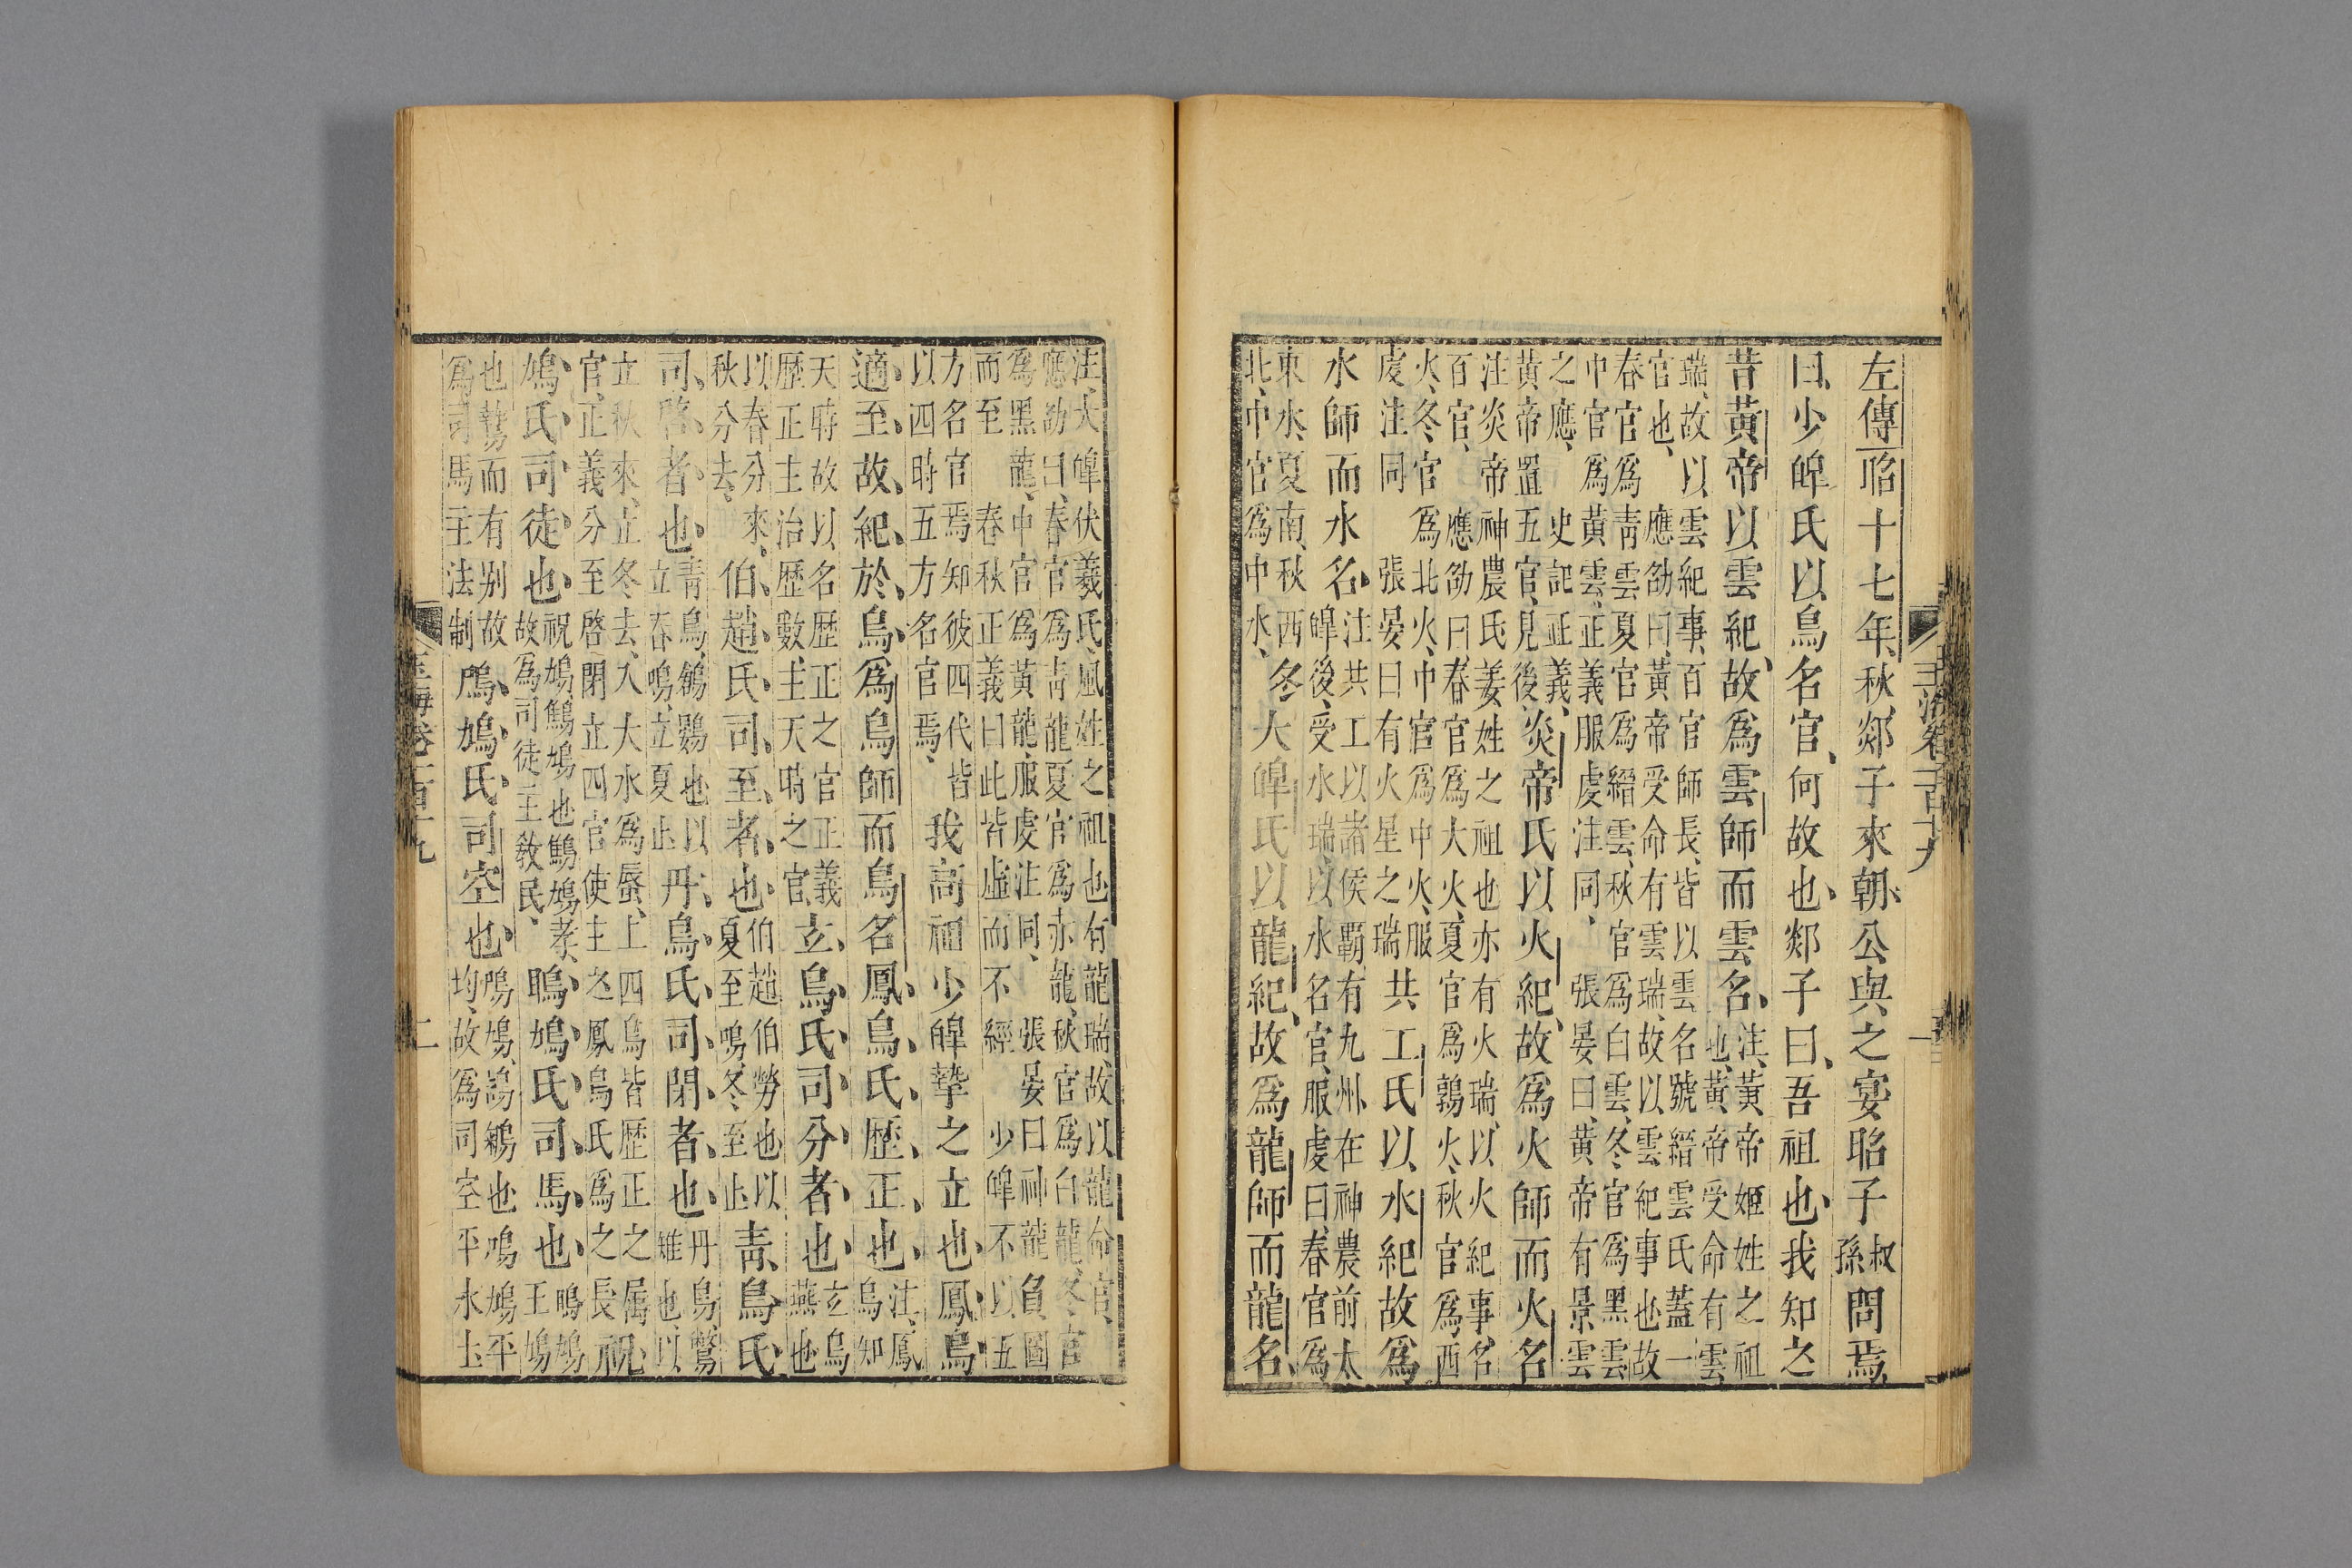 左傳昭十七年秋郯子來朝公與之宴昭子叔孫問焉
曰少皥氏以鳥名官何故也郯子曰吾祖也我知之
昔黃帝以雲紀故爲雲師而雲名注黃帝姬姓之祖也黃帝受命有雲
瑞故以雲紀事百官師長皆以雲名號縉雲氏蓋一
官也應劭曰黃帝受命有雲瑞故以雲紀事也故
春官爲靑雲夏官爲縉雲秋官爲白雲冬官爲黑雲
中官爲黃雲正義服虔注同張晏曰黃帝有景雲
之應史記正義
黃帝置五官見後炎帝氏以火紀故爲火師而火名
注炎帝神農氏姜姓之祖也亦有火瑞以火紀事名
百官應劭曰春官爲大火夏官爲鶉火秋官爲西
火冬官爲北火中官爲中火服
虔注同張晏曰有火星之瑞共工氏以水紀故爲
水師而水名注共工以諸侯霸有九州在神農前太
皥後受水瑞以水名官服虔曰春官爲
東水夏南秋西冬
北中官爲中水大皥氏以龍紀故爲龍師而龍名
注大皥伏羲氏風姓之祖也有龍瑞故以龍命官
應劭曰春官爲靑龍夏官爲赤龍秋官爲白龍冬官
爲黑龍中官爲黃龍服虔注同張晏曰神龍負圖
而至春秋正義曰此皆虛而不經少皥不以五
方名官焉知彼四代皆
以四時五方名官焉我高祖少皥摯之立也鳳鳥
適至故紀於鳥爲鳥師而鳥名鳳鳥氏歷正也注鳳鳥知
天時故以名歷正之官正義
歷正主治歷數主天時之官玄鳥氏司分者也玄鳥燕也
以春分來
秋分去伯趙氏司至者也伯趙伯勞也以夏至鳴冬至止靑鳥氏
司啓者也靑鳥鶬鷃也以立春鳴立夏止丹鳥氏司閉者也丹鳥鷩雉也以
立秋來立冬去入大水爲蜃上四鳥皆歷正之屬
官正義分至啓閉立四官使主之鳳鳥氏爲之長祝
鳩氏司徒也祝鳩鷦鳩也鷦鳩孝故爲司徒主敎民鴡鳩氏司馬也鴡鳩王鳩
也鷙而有別故
爲司馬主法制鳲鳩氏司空也鳲鳩鴶鵴也鳲鳩平均故爲司空平水土
玉海卷一百十九
二